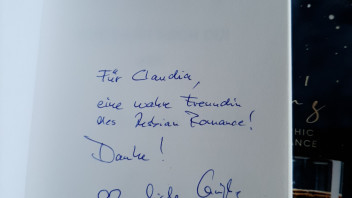 Für Claudia,
eine wahre Freundin
des Lesbian Romance!
Danke!
liebe Grüße
HIC
ANCE